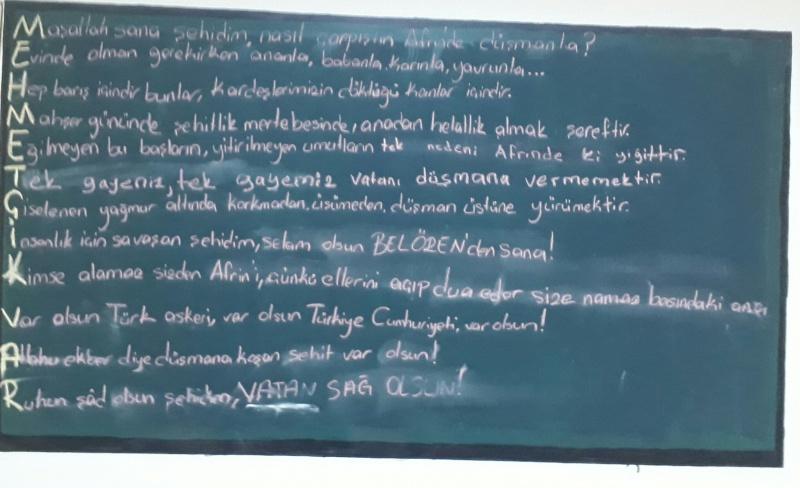 Maşallah sana şehidim, nasıl çarpıştın Afrin'de düşmanla?
Evinde olman gerekirken ananla, babanla, karınla, yavrunla...
Hep barış içindir bunlar, kardeşlerimizin döktüğü kanlar içindir.
Mahşer gününde şehitlik mertebesinde, anadan helallik almak şereftir.
Eğilmeyen bu başların, yitirilmeyen umutların tek nedeni Afrinde ki yiğittir.
Tek gayeniz, tek gayemiz vatanı düşmana vermemektir.
Çiselenen yağmur altında korkmadan, üşümeden, düşman üstüne yürümektir.
İnsanlık için savaşan şehidim, selam olsun BELÖREN'den sana!
Kimse alamaz sizden Afrin'i, çünkü ellerini açıp dua eder size namaz başındaki
Var olsun Türk askeri, var olsun Türkiye Cumhuriyeti, var olsun!
Allahu ekber diye düşmana koşan şehit var olsun!
Ruhun şâd olsun şehidim, VATAN SAĞ OLSUN!